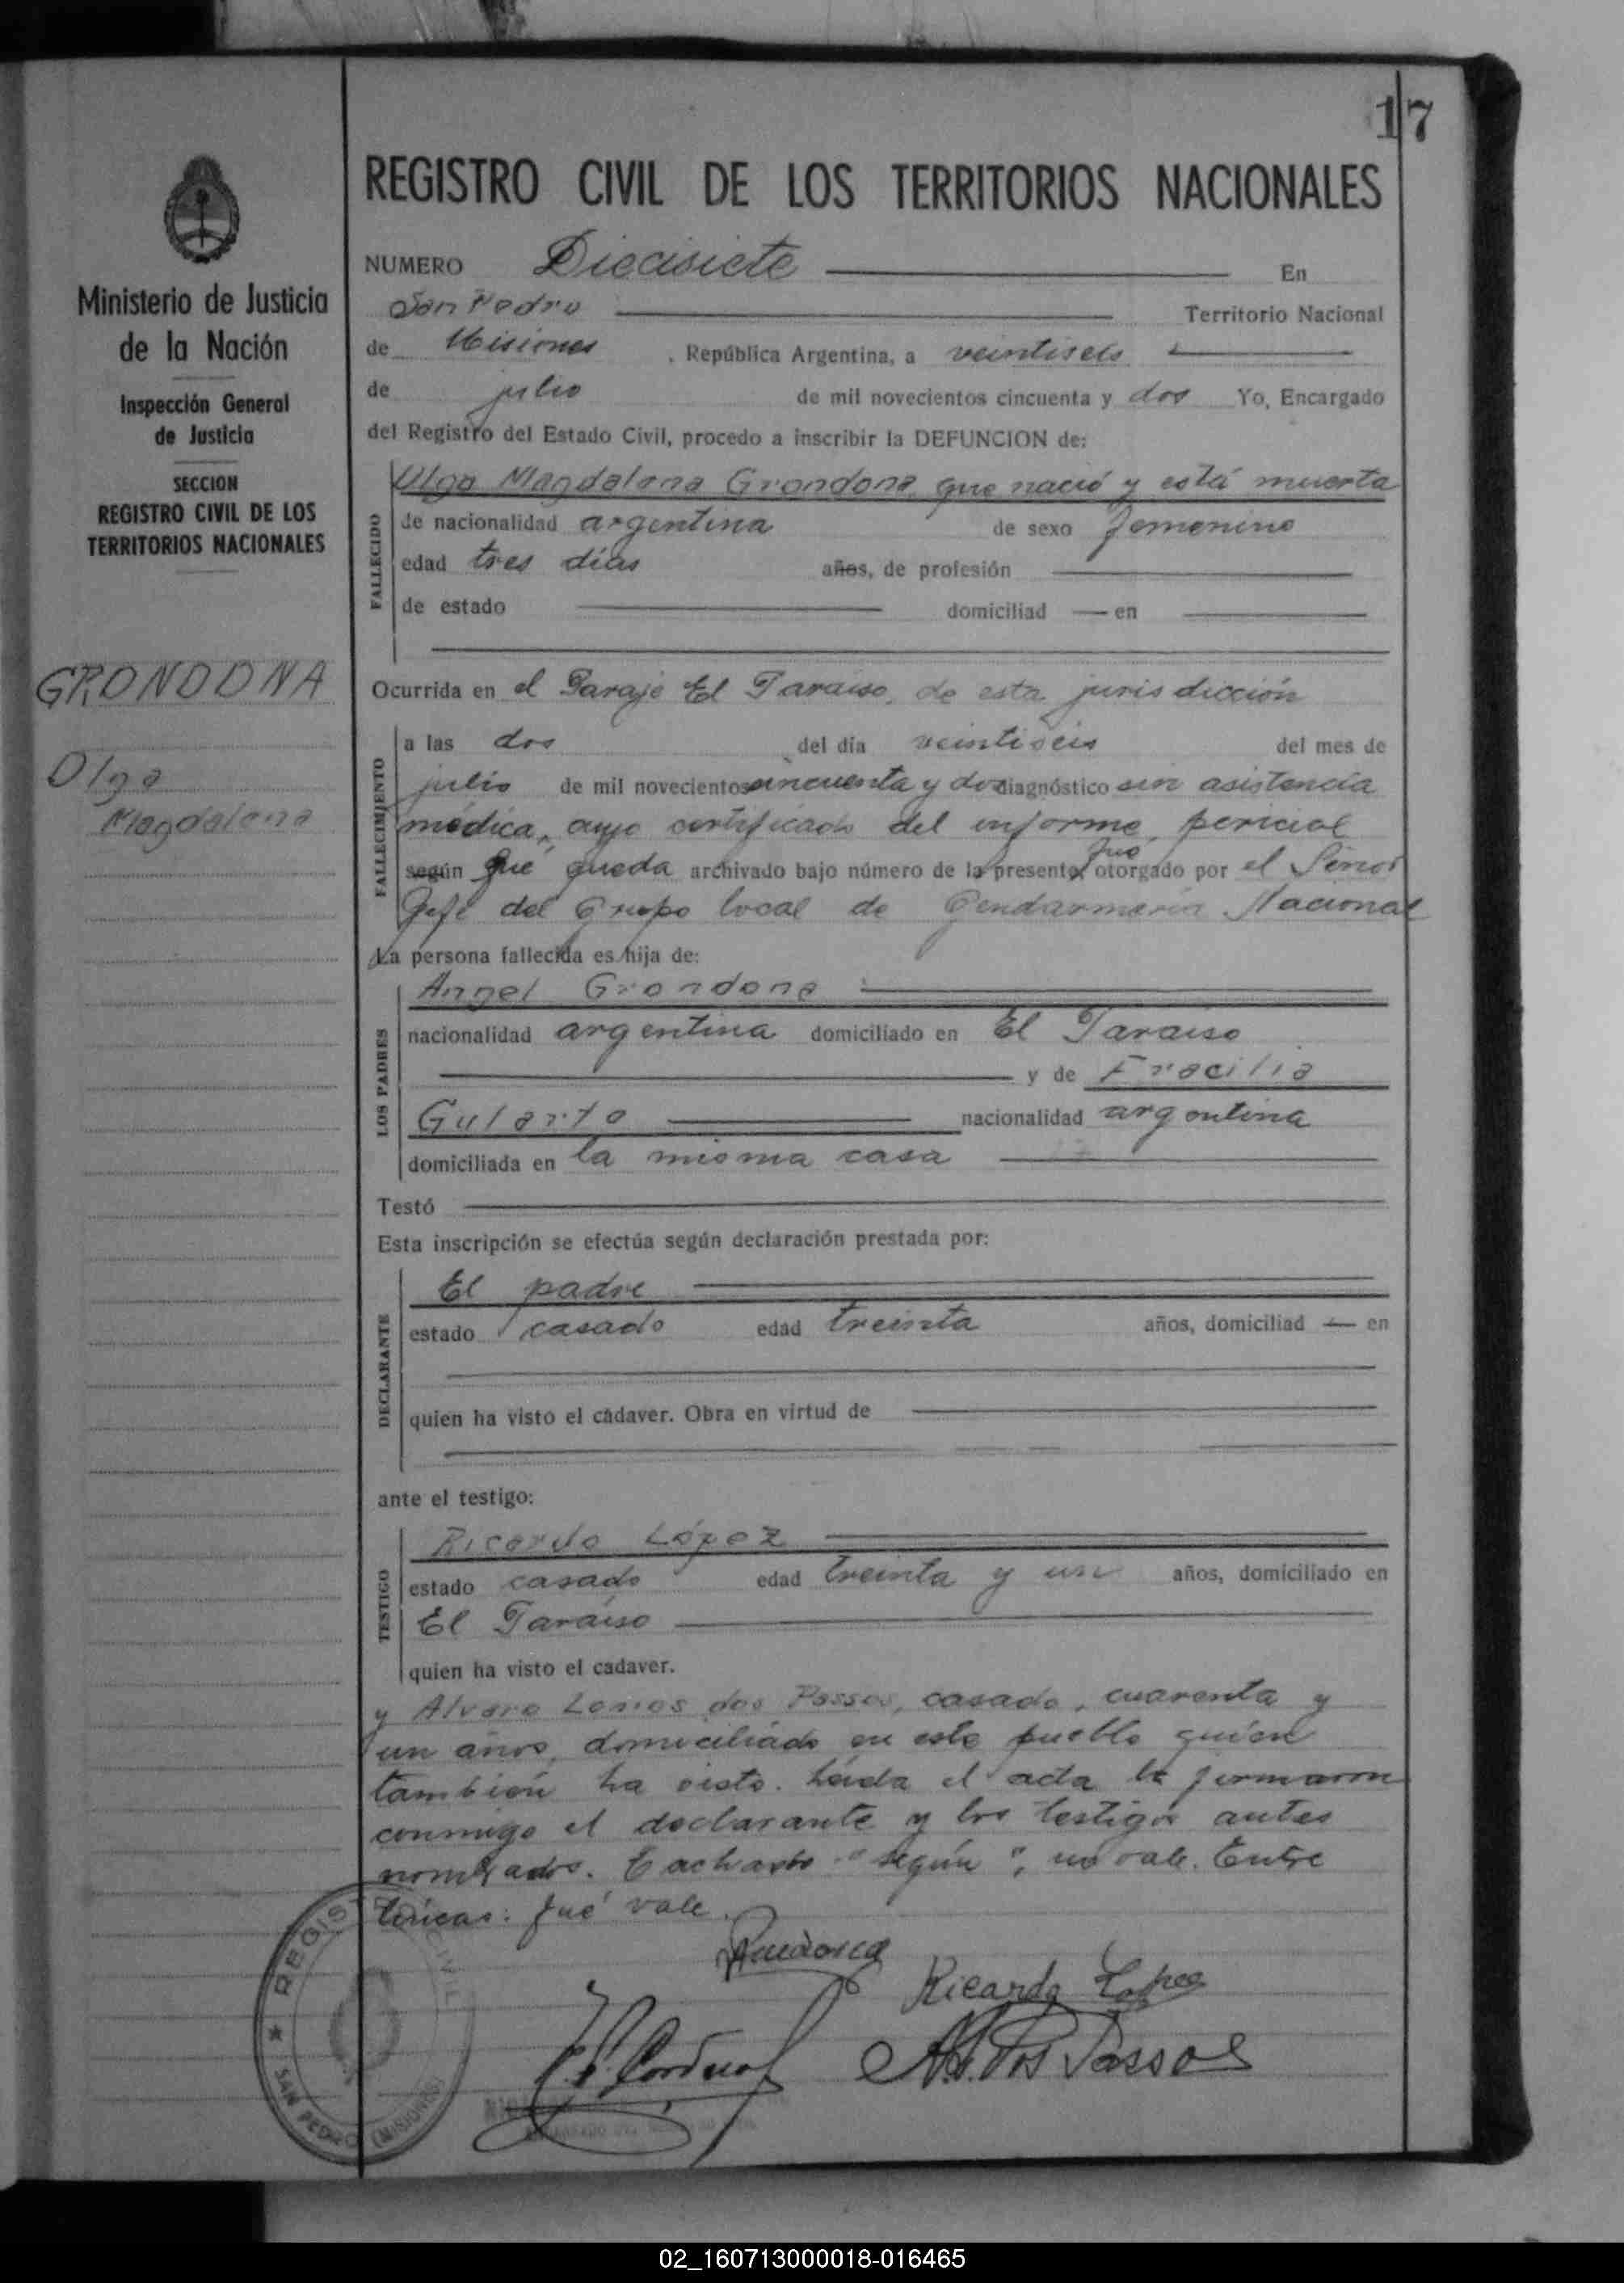 17
REGISTRO CIVIL DE LOS TERRITORIOS NACIONALES
Ministerio de Justicia
de la Nación
Inspección General
de Justicia
SECCION
REGISTRO CIVIL DE LOS
TERRITORIOS NACIONALES
GRONDONA
Olga
Magdalena
NUMERO Diecisiete En
San Pedro Territorio Nacional
de Misiones, República Argentina, a veintiseis
de julio de mil novecientos cincuenta y dos Yo, Encargado
del Registro del Estado Civil, procedo a inscribir la DEFUNCION de:
FALLECIDO
Olga Magdalena Grondona que nació y está muerta
de nacionalidad argentina de sexo femenino
edad tres días años, de profesión
de estado domiciliad — en
Ocurrida en el Paraje El Paraiso, de esta jurisdicción
FALLECIMIENTO
a las dos del día veintiseis del mes de
julio de mil novecientos cincuenta y dos diagnóstico sin asistencia
médica, cuyo certificado del informe pericial
según que queda archivado bajo número de la presente, fué otorgado por el Señor
Jefe del Grupo local de Gendarmeria Nacional
La persona fallecida es hija de:
LOS PADRES
Angel Grondona
nacionalidad argentina domiciliado en El Paraiso
y de Fracilia
Gularte nacionalidad argentina
domiciliada en la misma casa
Testó
Esta inscripción se efectúa según declaración prestada por:
DECLARANTE
El padre
estado casado edad treinta años, domiciliad — en
quien ha visto el cádaver. Obra en virtud de
ante el testigo:
TESTIGO
Ricardo López
estado casado edad treinta y un años, domiciliado en
El Paraiso
quien ha visto el cadaver.
y Alvaro Lemos dos Passos, casado, cuarenta y
un años, domiciliado en este pueblo quien
también ha visto. Leida el acta la firmaron
conmigo el declarante y los testigos antes
nombrados. Tachado "según", no vale. Entre
líneas: fué vale.
Ricardo Lopez
A. L. Dos Passos
REGISTRO CIVIL
SAN PEDRO (MISIONES)
02_160713000018-016465